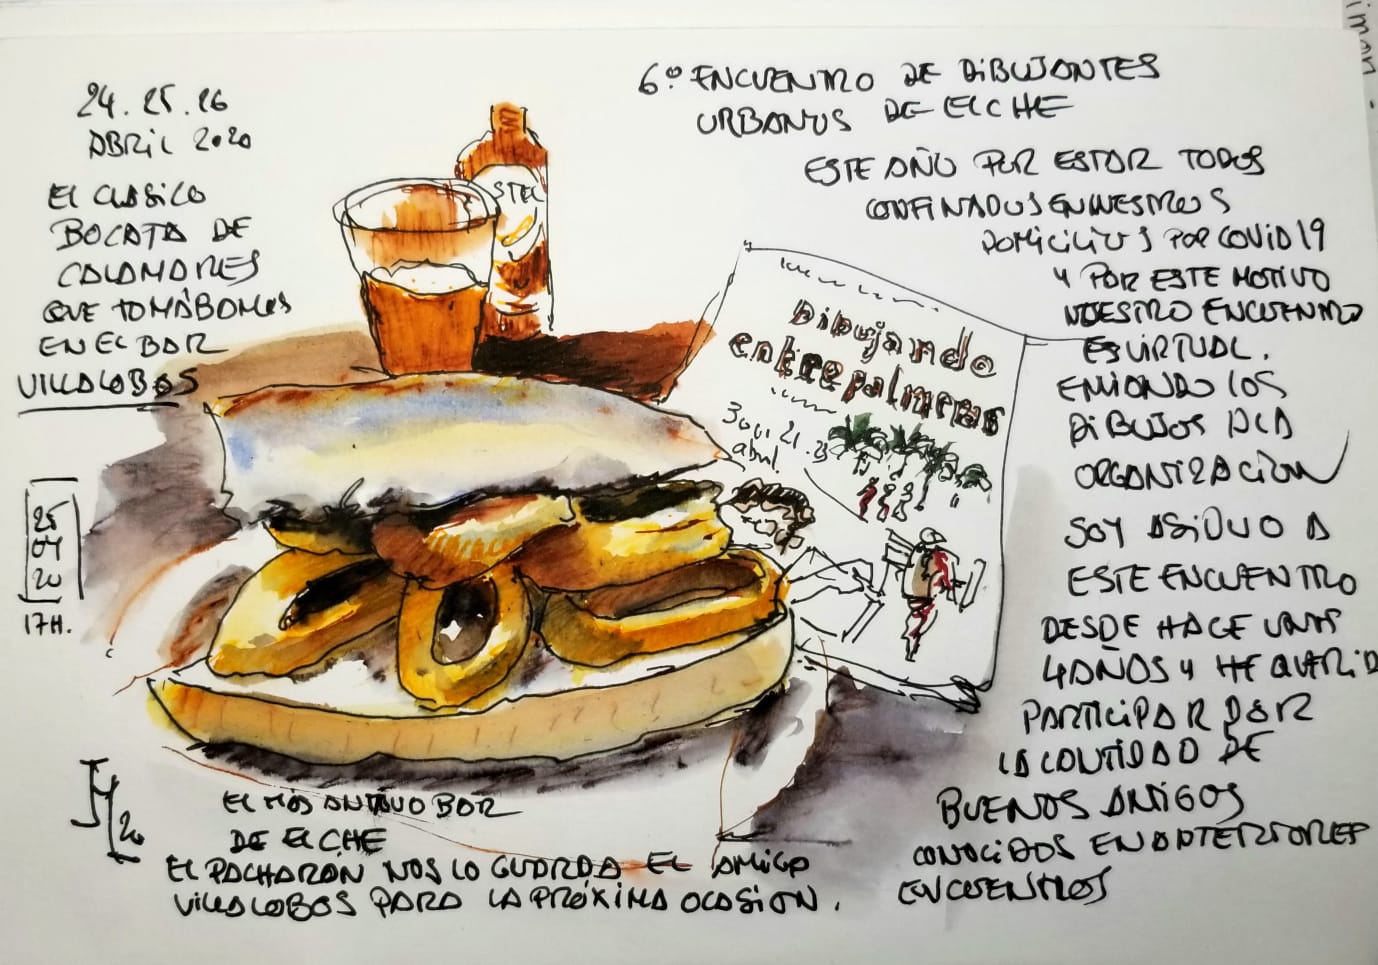 24.25.26
ABRIL 2020
EL CLASICO
BOCATA DE
CALAMARES
QUE TOMÁBAMOS
EN EL BAR
VILLALOBOS
25
04
20
17H.
6º ENCUENTRO DE DIBUJANTES
URBANOS DE ELCHE
ESTE AÑO POR ESTAR TODOS
CONFINADOS EN NUESTROS
DOMICILIOS POR COVID19
Y POR ESTE MOTIVO
NUESTRO ENCUENTRO
ES VIRTUAL.
ENVIANDO LOS
DIBUJOS A LA
ORGANIZACION
SOY ASIDUO A
ESTE ENCUENTRO
DESDE HACE UNOS
4 AÑOS Y HE QUERID
PARTICIPAR POR
LA CANTIDAD DE
BUENOS AMIGOS
CONOCIDOS EN ANTERIORES
ENCUENTROS
STEL
Dibujando
entre palmeras
abril
20
EL MÁS ANTIGUO BAR
DE ELCHE
EL PACHARÁN NOS LO GUARDA EL AMIGO
VILLALOBOS PARA LA PRÓXIMA OCASION.